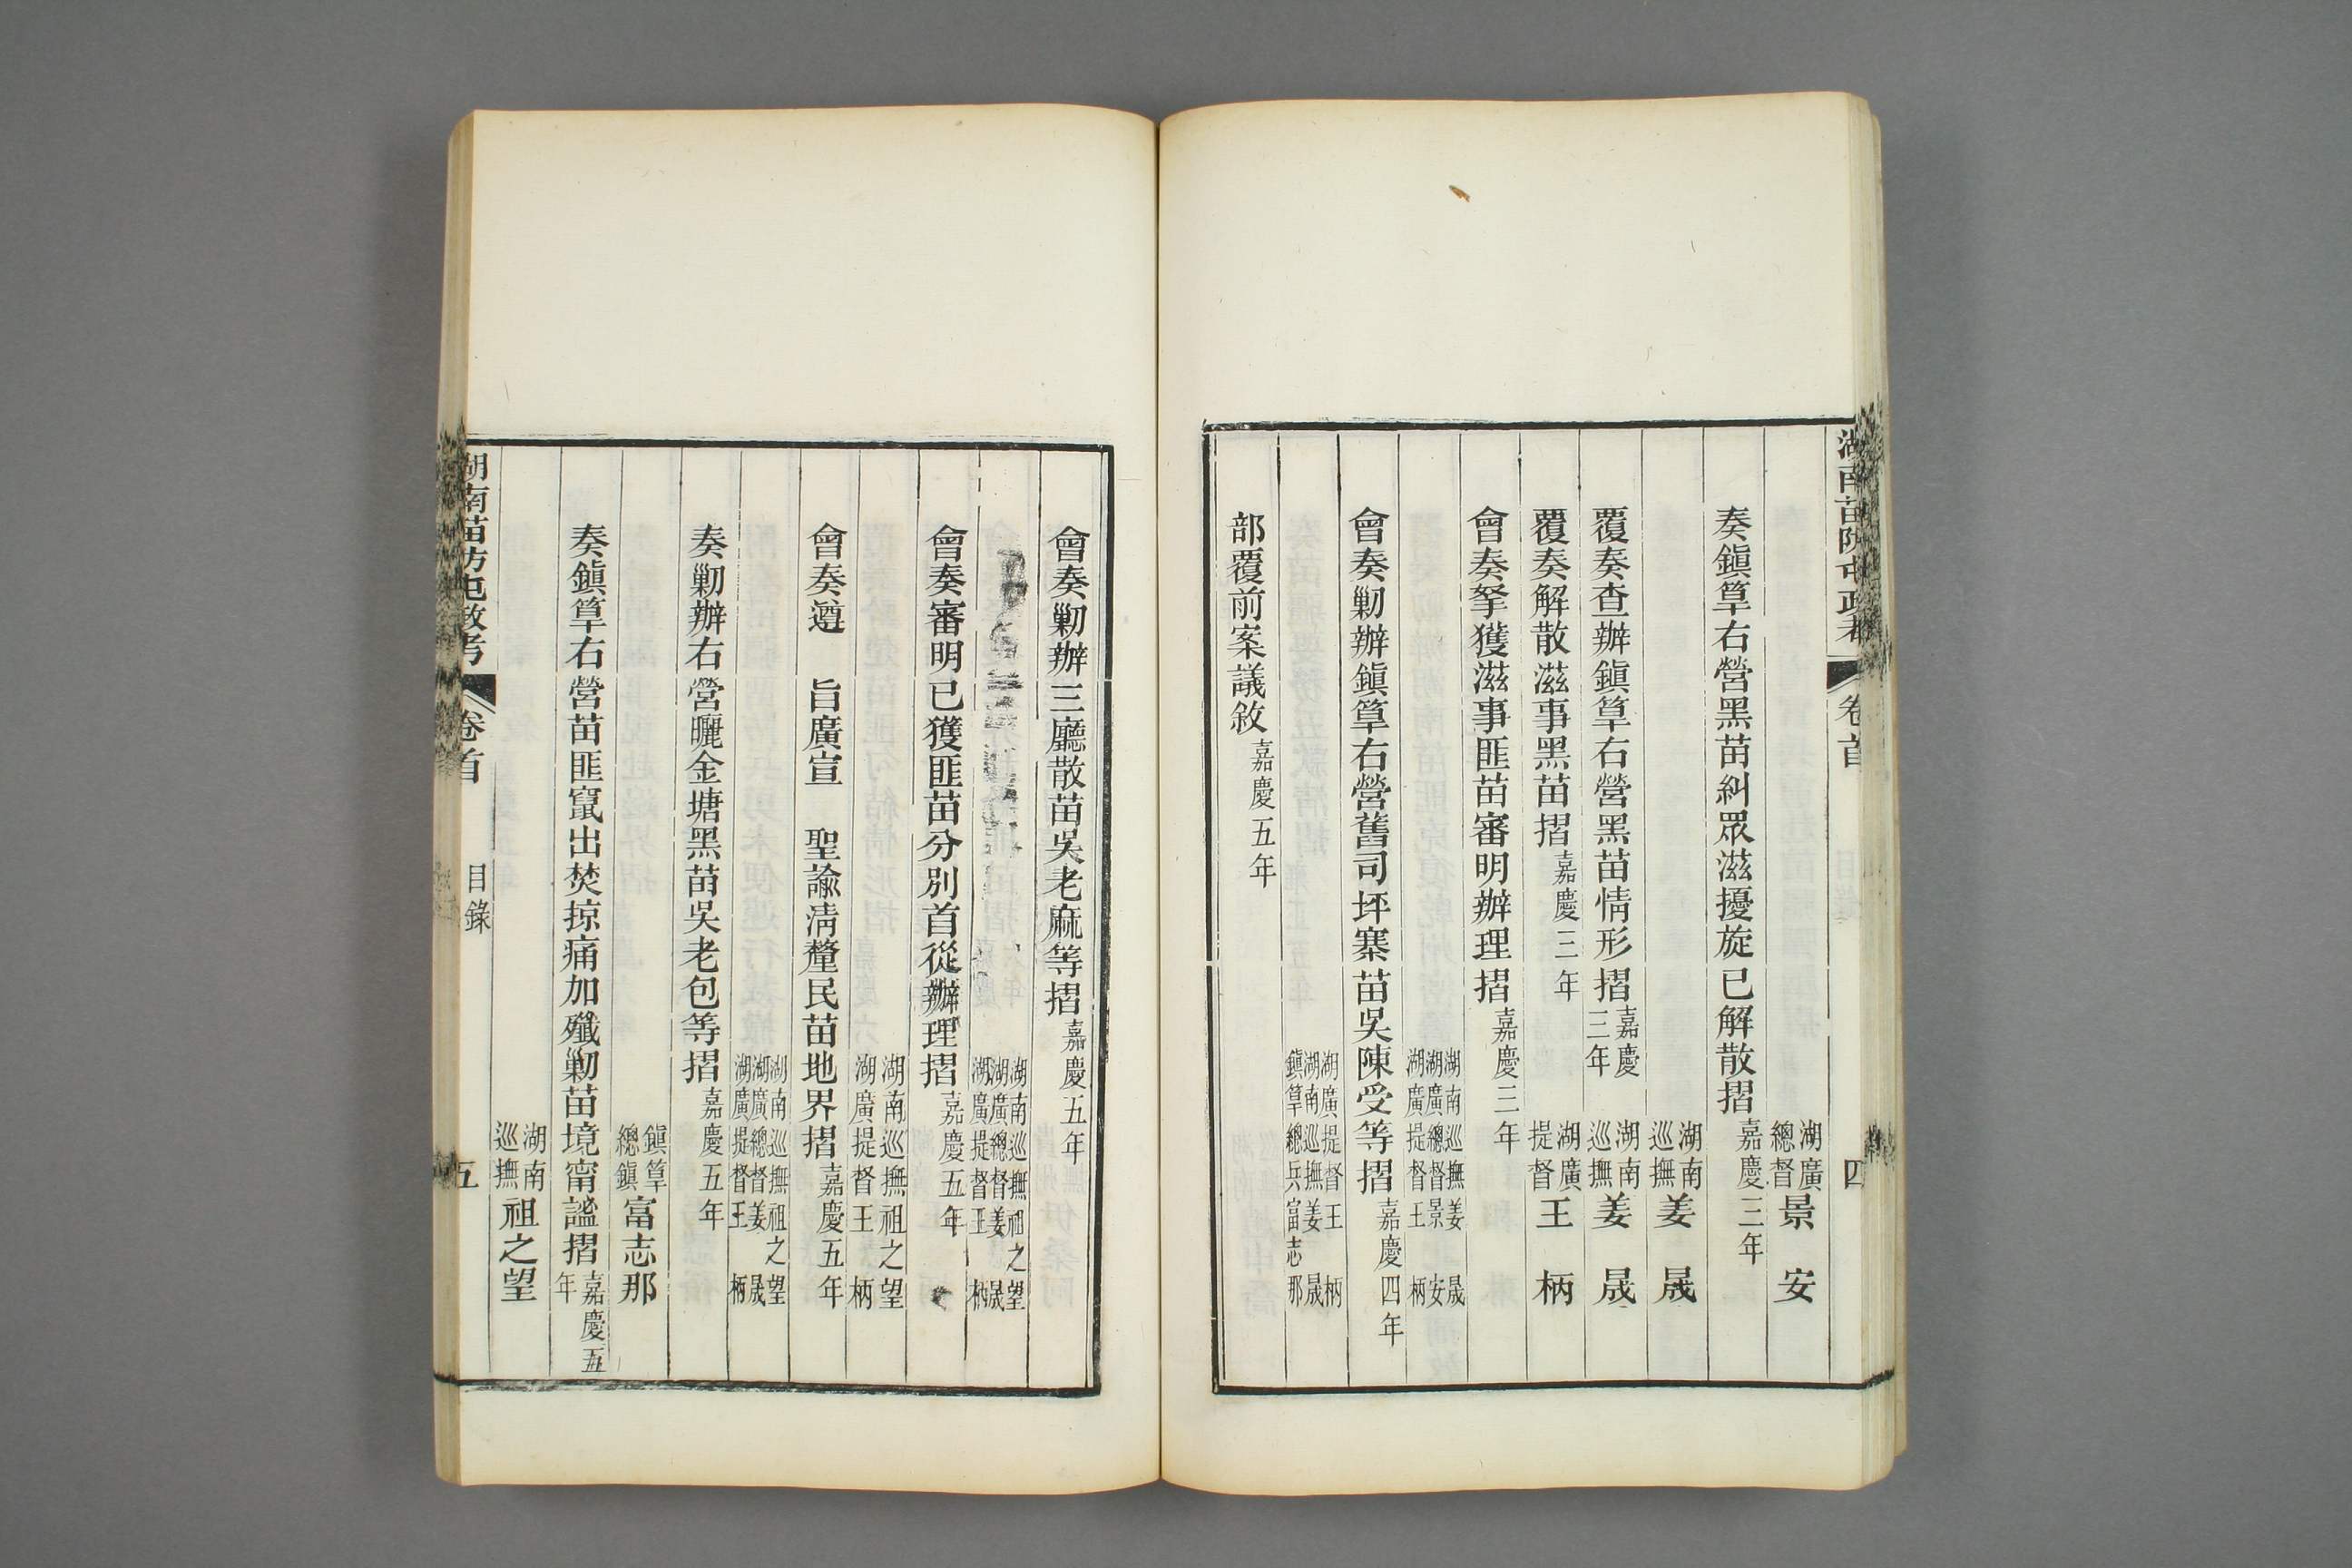 湖南苗防屯政考
卷首
四
湖廣總督景安
奏鎭筸右營黑苗糾眾滋擾旋已解散摺嘉慶三年
湖南巡撫姜晟
覆奏查辦鎭筸右營黑苗情形摺嘉慶三年
湖南巡撫姜晟
覆奏解散滋事黑苗摺嘉慶三年
湖廣提督王柄
會奏拏獲滋事匪苗審明辦理摺嘉慶三年
湖南巡撫姜晟
湖廣總督景安
湖廣提督王柄
會奏剿辦鎭筸右營舊司坪寨苗吳陳受等摺嘉慶四年
湖廣提督王柄
湖南巡撫姜晟
鎭筸總兵富志那
部覆前案議敘嘉慶五年
會奏剿辦三廳散苗吳老麻等摺嘉慶五年
湖南巡撫祖之望
湖廣總督姜晟
湖廣提督王柄
會奏審明已獲匪苗分別首從辦理摺嘉慶五年
湖南巡撫祖之望
湖廣提督王柄
會奏遵　旨廣宣　聖諭淸釐民苗地界摺嘉慶五年
湖南巡撫祖之望
湖廣總督姜晟
湖廣提督王柄
奏剿辦右營曬金塘黑苗吳老包等摺嘉慶五年
鎭筸總鎭富志那
奏鎭筸右營苗匪竄出焚掠痛加殲剿苗境甯謐摺嘉慶五年
湖南巡撫祖之望
湖南苗防屯政考
卷首
目錄
五